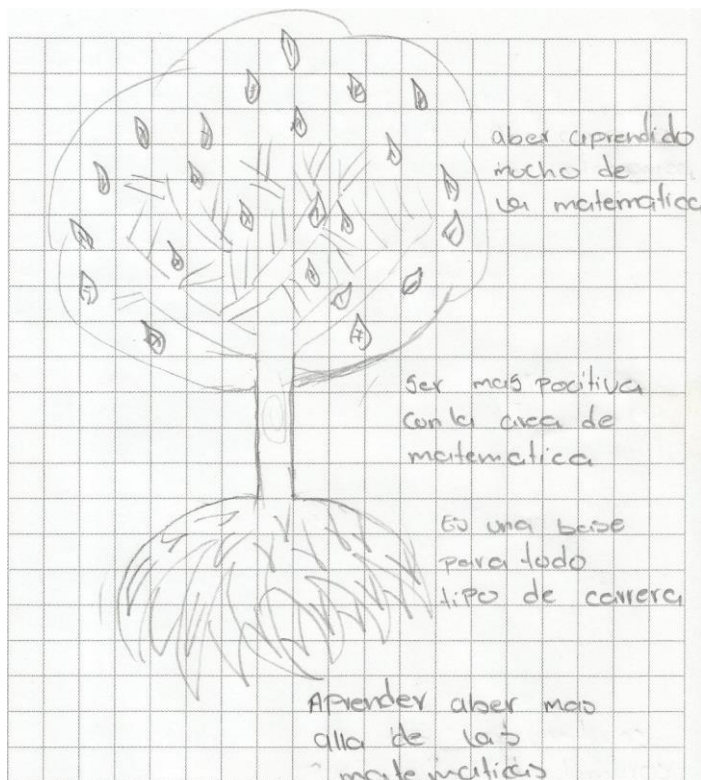 aber aprendido
mucho de
la matematica
Ser mas pocitiva
con la area de
matematica
Es una base
para todo
tipo de carrera
Aprender aber mas
alla de las
matematicas